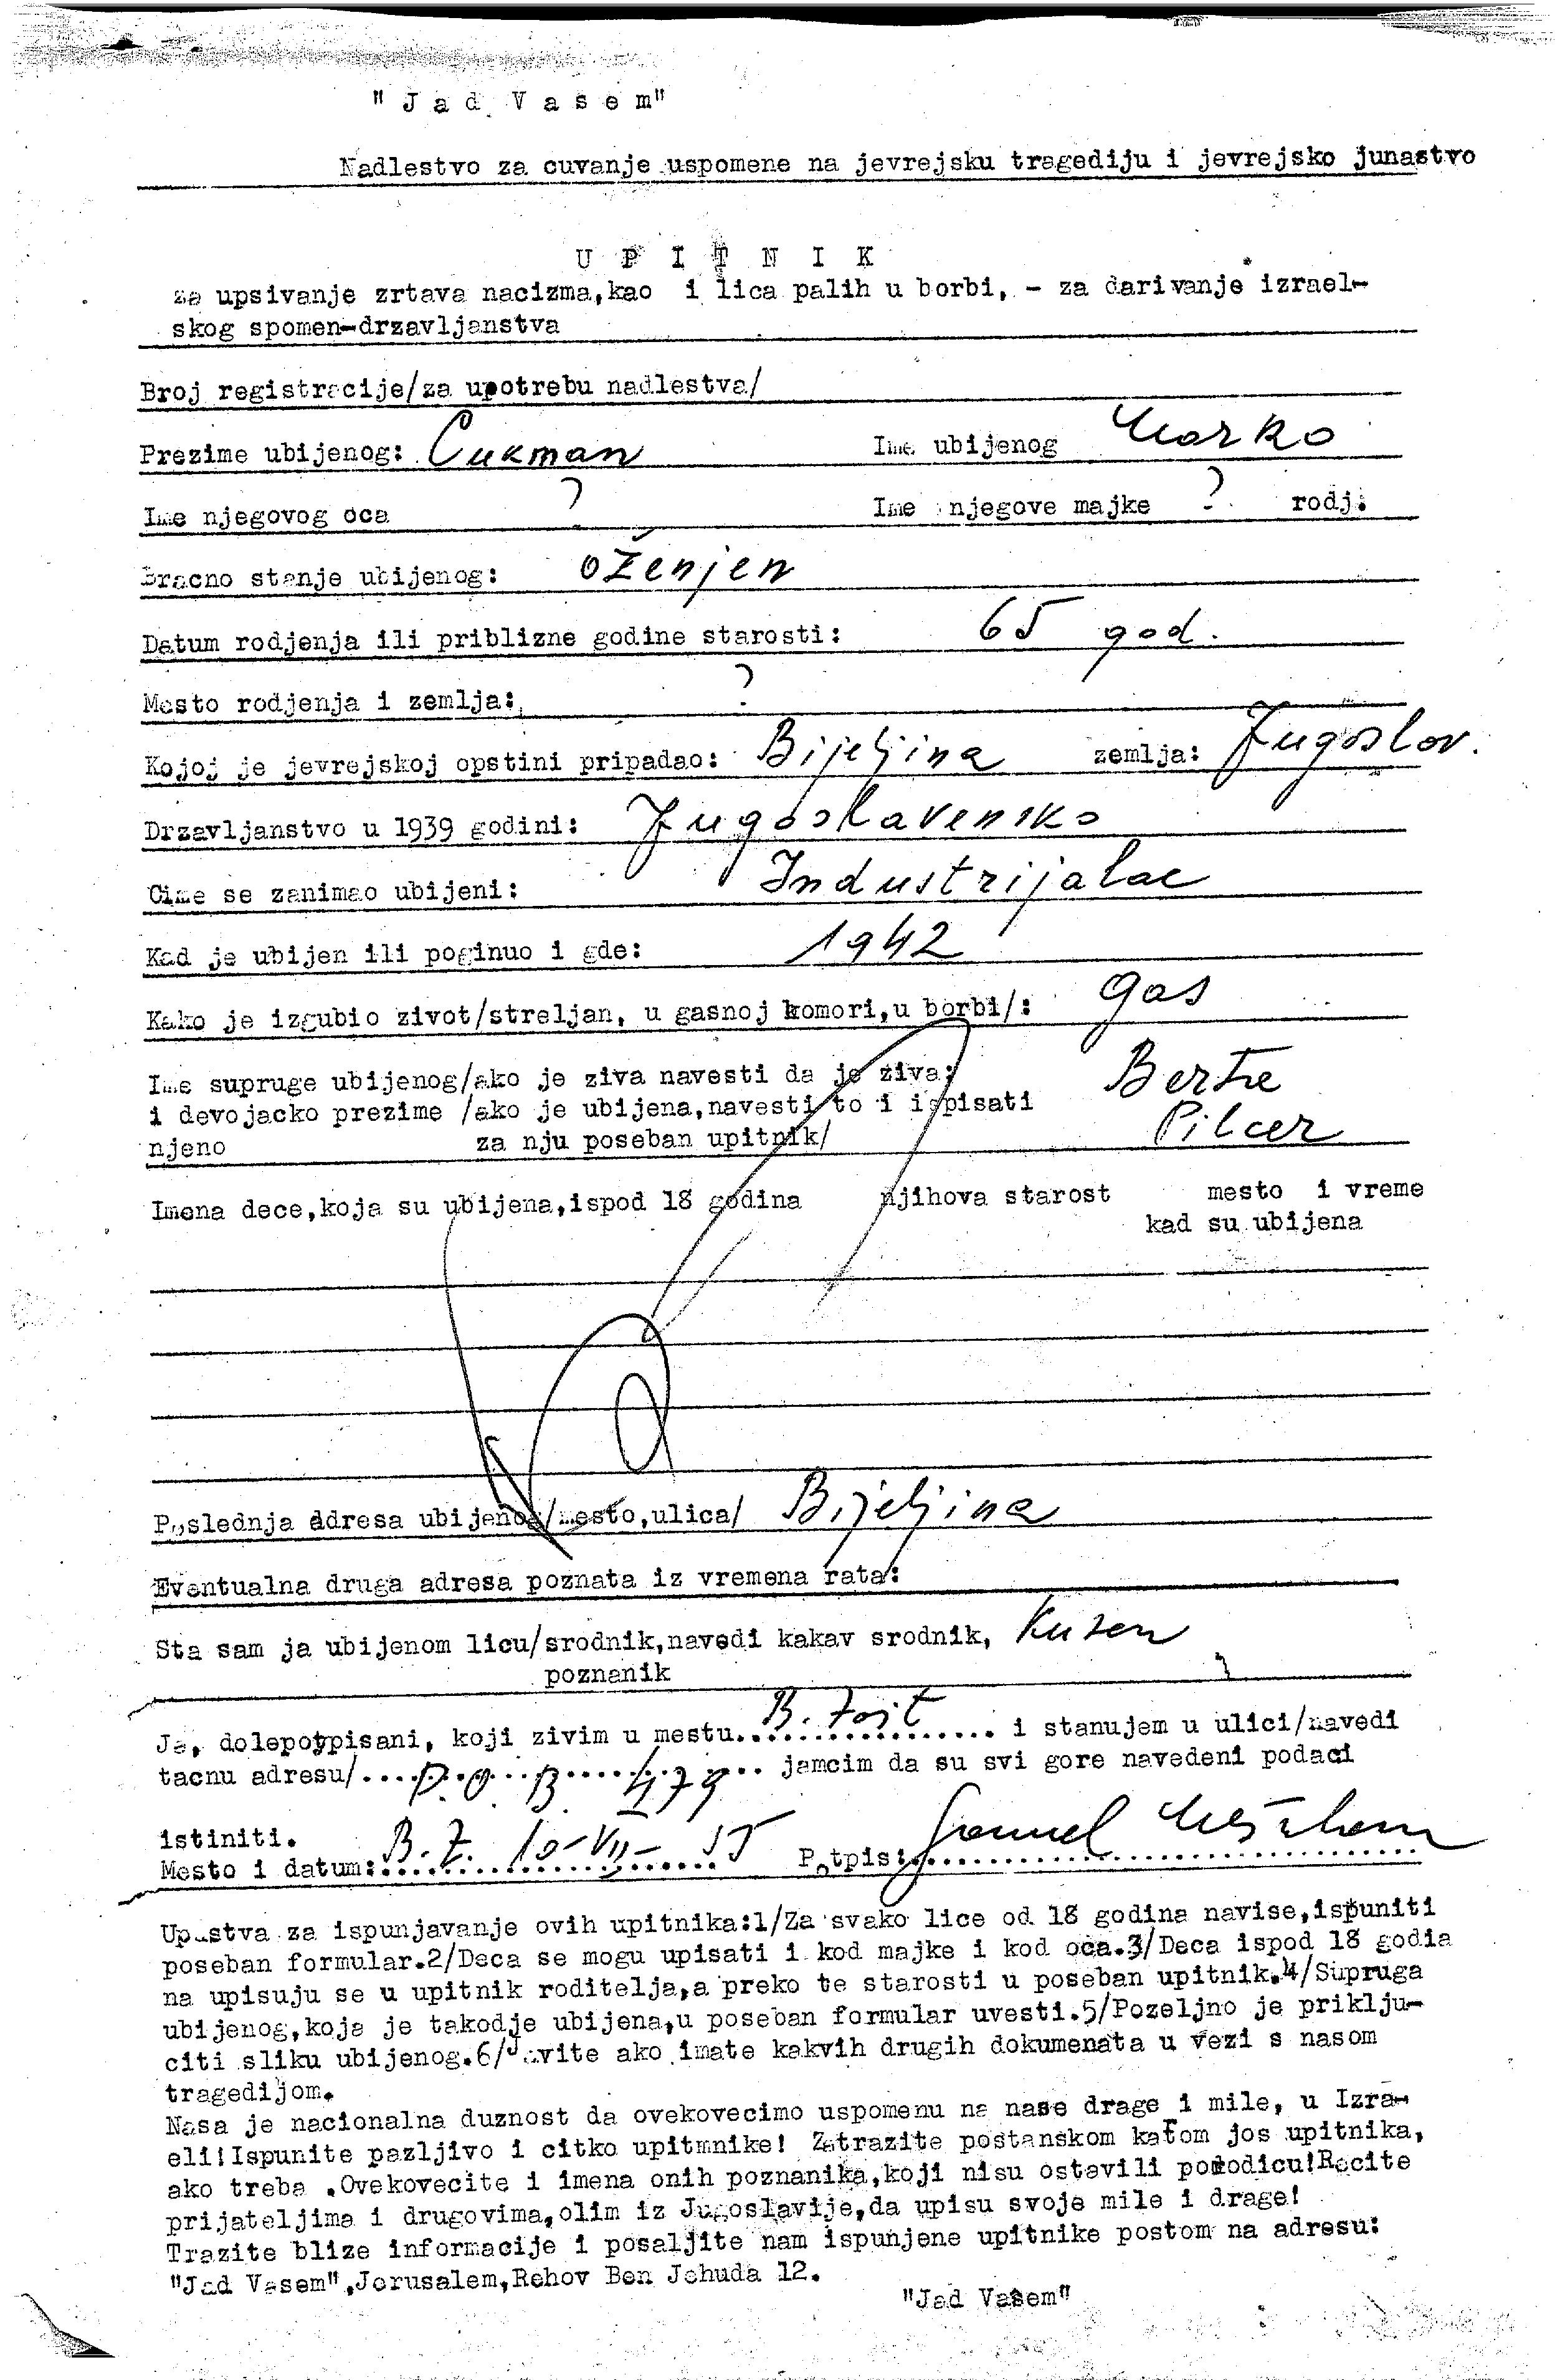 "Jad Vasem"
Nadlestvo za cuvanje uspomene na jevrejsku tragediju i jevrejsko junastvo
UPITNIK
za upsivanje zrtava nacizma,kao i lica palih u borbi, - za darivanje izrael-
skog spomen-drzavljanstva
Broj registracije/za upotrebu nadlestva/
Prezime ubijenog: Cukman Ime ubijenog Marko
Ime njegovog oca ? Ime njegove majke ? rodj.
Bracno stanje ubijenog: oženjen
Datum rodjenja ili priblizne godine starosti: 65 god.
Mesto rodjenja i zemlja: ?
Kojoj je jevrejskoj opstini pripadao: Bijeljina zemlja: Jugoslov.
Drzavljanstvo u 1939 godini: Jugoslavensko
Cime se zanimao ubijeni: Industrijalac
Kad je ubijen ili poginuo i gde: 1942
Kako je izgubio zivot/streljan, u gasnoj komori,u borbi/: gas
Ime supruge ubijenog/ako je ziva navesti da je ziva; Berta
i devojacko prezime /ako je ubijena,navesti to i ispisati
njeno za nju poseban upitnik/ Pilcer
Imena dece,koja su ubijena,ispod 18 godina njihova starost mesto i vreme
kad su ubijena
Poslednja adresa ubijenog/mesto,ulica/ Bijeljina
Eventualna druga adresa poznata iz vremena rata:
Sta sam ja ubijenom licu/srodnik,navedi kakav srodnik, Kuzen
poznanik
Ja, dolepotpisani, koji zivim u mestu.....B. Zajt..... i stanujem u ulici/navedi
tacnu adresu/....P.O.B. 479.... jamcim da su svi gore navedeni podaci
istiniti.
Mesto i datum:..B.Z. 10-VII-55 Potpis:..Samuel
Upustva za ispunjavanje ovih upitnika:1/Za svako lice od 18 godina navise,ispuniti
poseban formular.2/Deca se mogu upisati i kod majke i kod oca.3/Deca ispod 18 godia
na upisuju se u upitnik roditelja,a preko te starosti u poseban upitnik.4/Supruga
ubijenog,koja je takodje ubijena,u poseban formular uvesti.5/Pozeljno je priklju-
citi sliku ubijenog.6/Javite ako imate kakvih drugih dokumenata u vezi s nasom
tragedijom.
Nasa je nacionalna duznost da ovekovecimo uspomenu na nase drage i mile, u Izra-
eli!Ispunite pazljivo i citko upitnnike! Zatrazite postanskom katom jos upitnika,
ako treba .Ovekovecite i imena onih poznanika,koji nisu ostavili porodicu!Recite
prijateljima i drugovima,olim iz Jugoslavije,da upisu svoje mile i drage!
Trazite blize informacije i posaljite nam ispunjene upitnike postom na adresu:
"Jad Vasem",Jerusalem,Rehov Ben Jehuda 12.
"Jad Vasem"